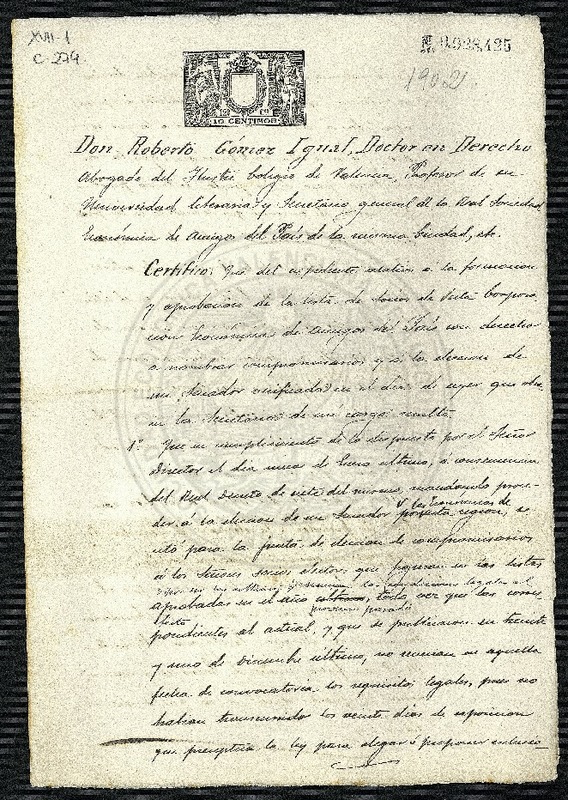 XVIII-1
C-274
N. 0.928,425
1902
10 CENTIMOS
Don Roberto Gómez Igual, Doctor en Derecho
Abogado del Ilustre Colegio de Valencia, Profesor de su
Universidad literaria y Secretario general de la Real Sociedad
Económica de Amigos del País de la misma Ciudad, etc.
Certifico: Que del expediente relativo á la formacion
y aprobacion de la lista de Socios de dicha Corpora
cion Económica de Amigos del País con derecho
a nombrar compromisarios y á la eleccion de
un Senador verificada en el dia de ayer que obra
en la Secretaría de mi cargo resulta
1º Que en cumplimiento de lo dispuesto por el Señor
Director el dia once de Enero último, á consecuencia
del Real decreto de siete del mismo, mandando proce-
der á la eleccion de un Senador por las Económicas de
esta region, se
citó para la junta de eleccion de compromisarios
á los Señores socios electores que figuran en las listas
aprobadas en el año último, toda vez que las corres
proximo pasado
pondientes al actual, y que se publicaron en treinta
y uno de Diciembre último, no reunian en aquella
fecha de convocatoria los requisitos legales, pues no
habian transcurrido los veinte dias de esposicion
que preceptúa la ley para alegar ó proponer